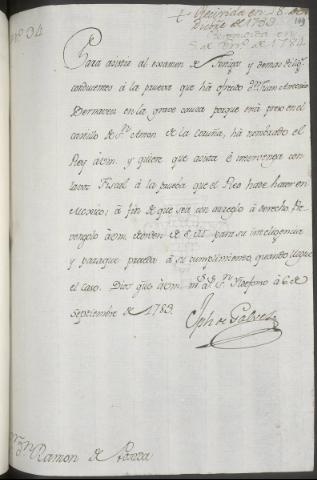 Recivida en 28 de
Dicre de 1783
respondida en
5 de de 1784
nº 94
Para asistir al examen de Testigos y demas dilig.
conducentes á la prueva que ha ofrecido Dn Juan Antonio
en la grave causa porque está preso en el
castillo de Sn Anton de la Coruña, há nombrado el
Rey á Vm. y quiere que asista é intervenga con
la voz Fiscal á la prueba que el Reo hade hacer en
Mexico; á fin de que sea con arreglo á derecho. Pre-
vengolo á Vm. de orden de S. M. para su inteligencia
y paraque proceda á su cumplimiento quando llegue
el caso. Dios gue á Vm. ms as Sn Ildefonso á 6 de
Septiembre de 1783.
Jph de Galvez
Sr Dn Ramon de Posada